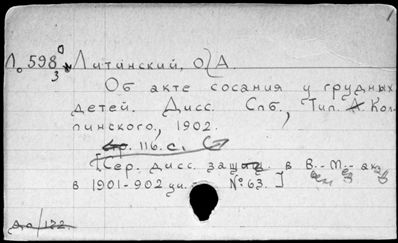 Л. 598 Литинский, О. А.
3
Об акте сосания у грудных
детей. Дисс. Спб., Тип. Кол-
пинского, 1902.
116 с.
[Сер. дисс. защищ. в В.-Мед. ак.
в 1901-902 уч. № 63.]
/122